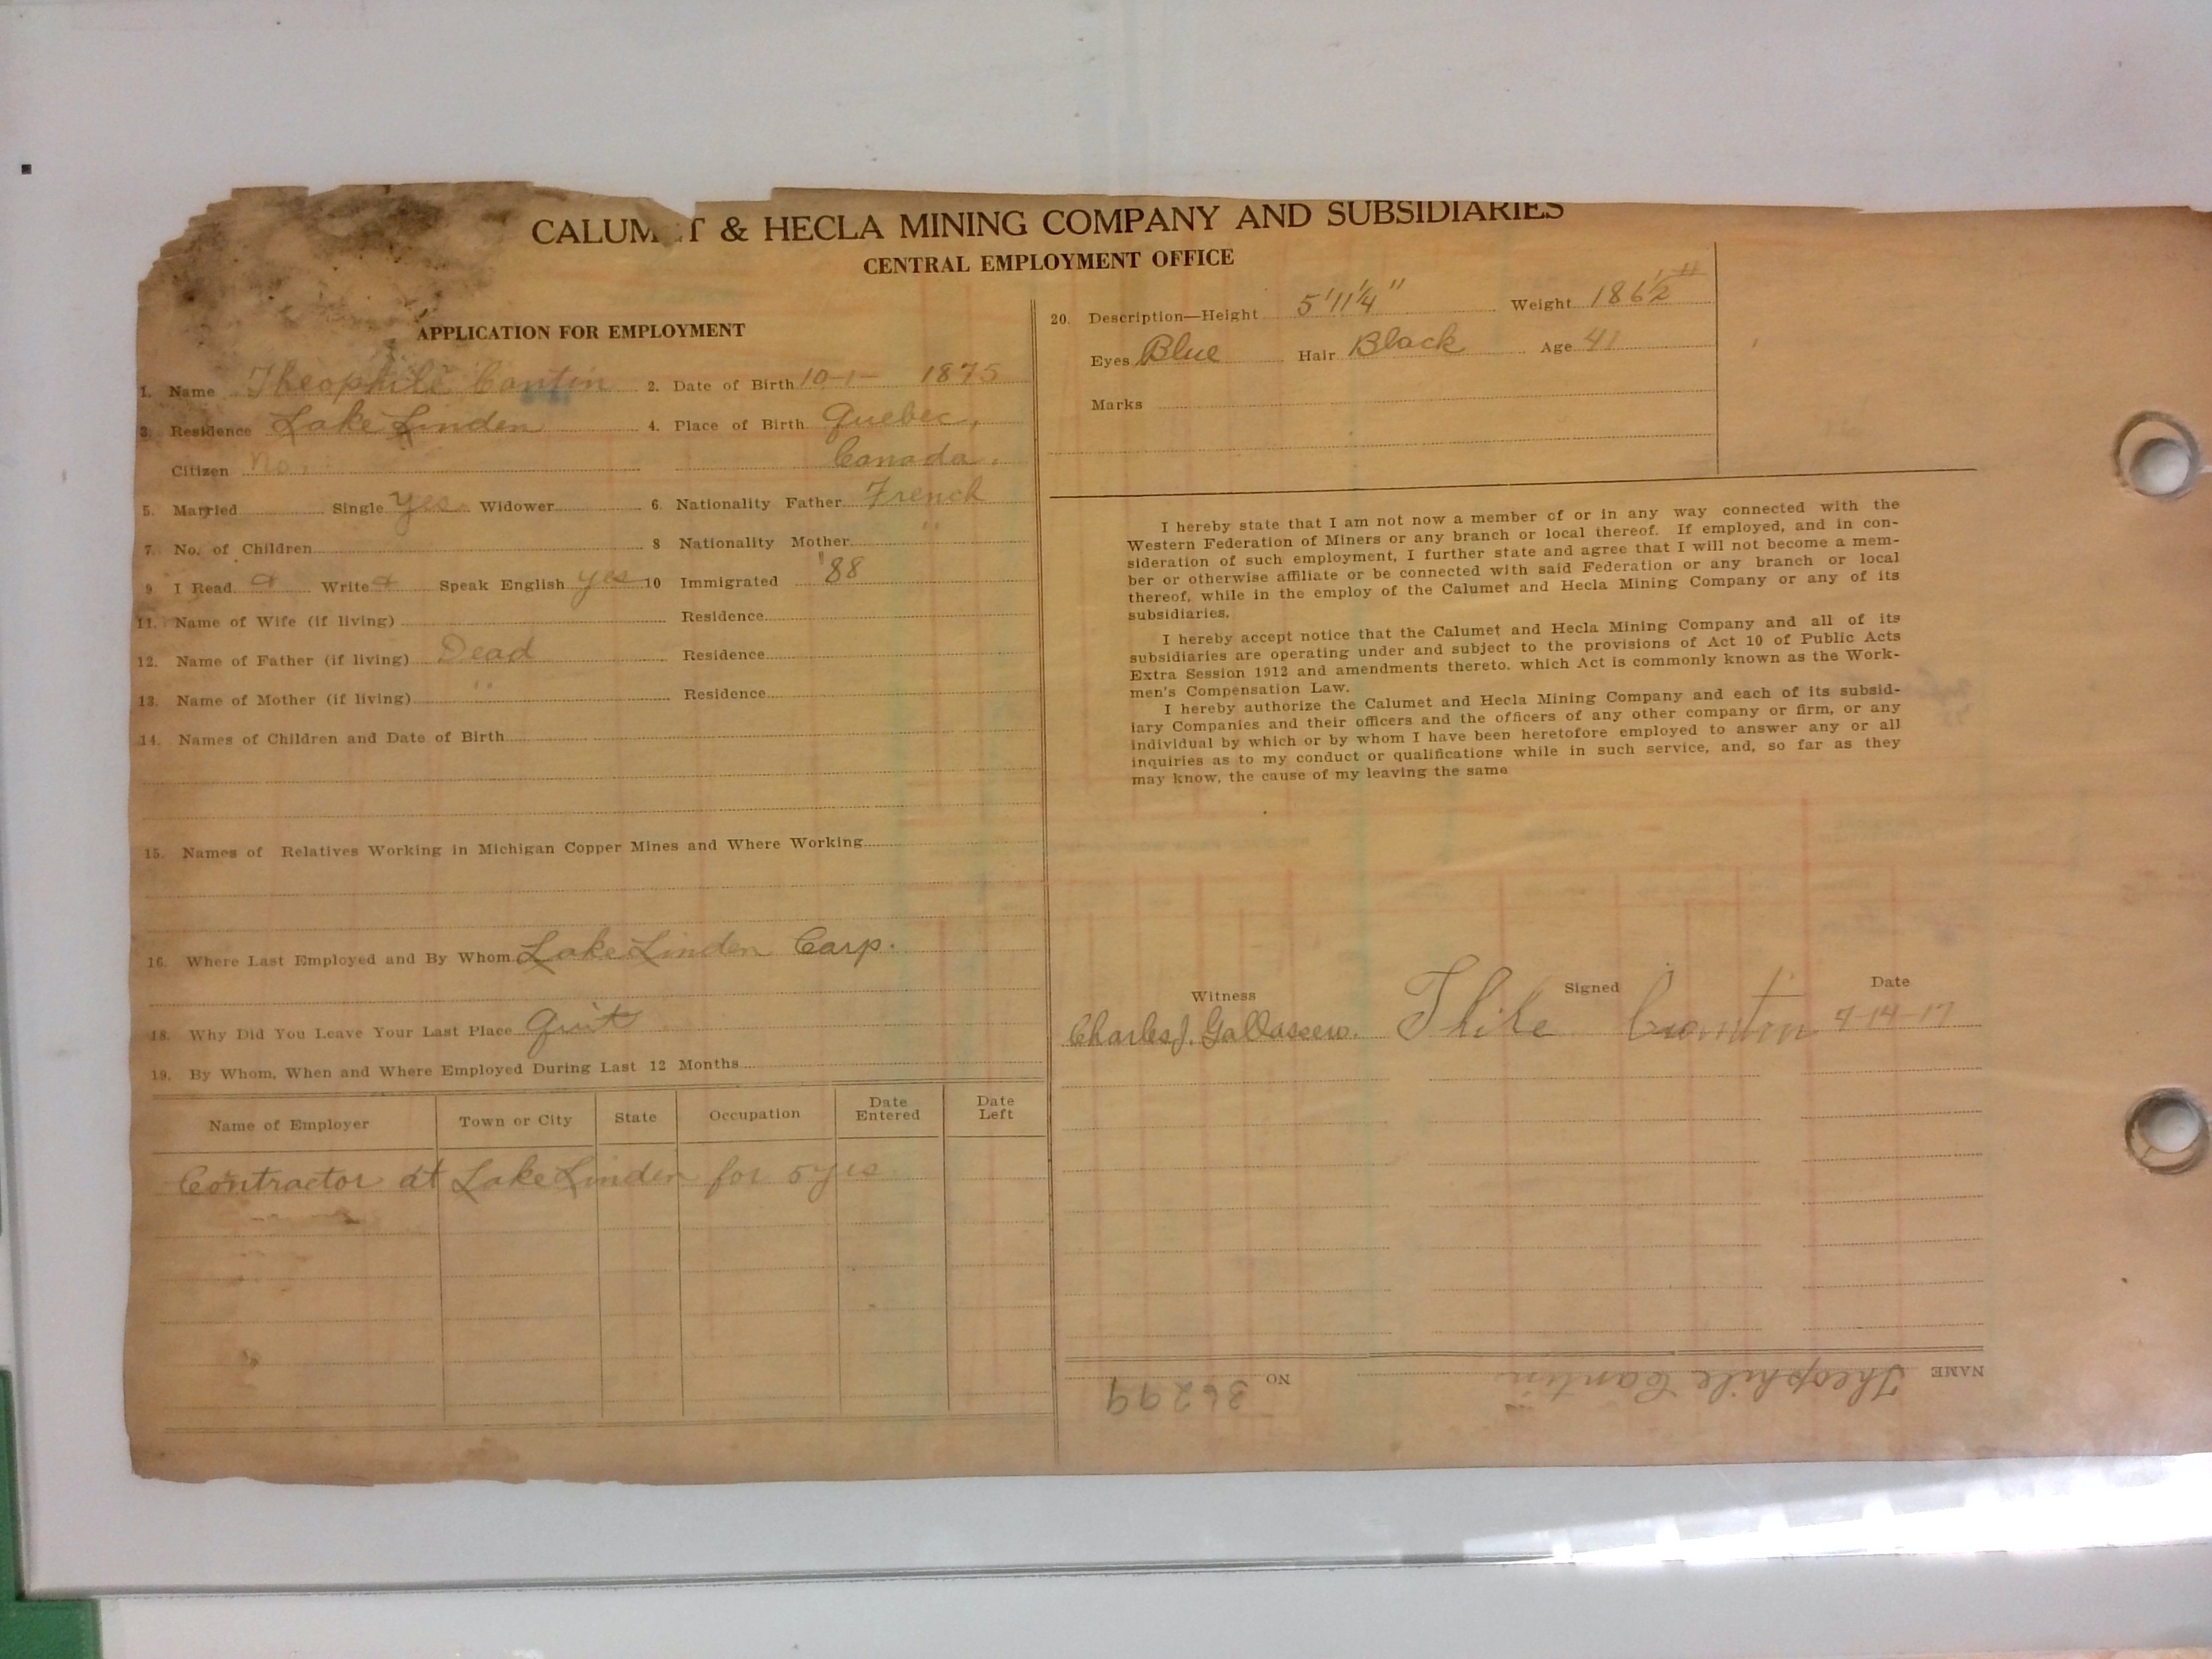 CALUMET & HECLA MINING COMPANY AND SUBSIDIARIES
CENTRAL EMPLOYMENT OFFICE
APPLICATION FOR EMPLOYMENT
1. Name Theophile Cantin 2. Date of Birth 10-1- 1875
3. Residence Lake Linden 4. Place of Birth Quebec,
Citizen No. Canada.
5. Married Single Yes Widower 6. Nationality Father French
7. No. of Children 8 Nationality Mother "
9 I Read Write Speak English yes 10 Immigrated '88
11. Name of Wife (if living) Residence
12. Name of Father (if living) Dead Residence
13. Name of Mother (if living) " Residence
14. Names of Children and Date of Birth
15. Names of Relatives Working in Michigan Copper Mines and Where Working
16. Where Last Employed and By Whom Lake Linden Carp.
18. Why Did You Leave Your Last Place Quit
19. By Whom, When and Where Employed During Last 12 Months
Name of Employer Town or City State Occupation Date Entered Date Left
Contractor at Lake Linden for 5 yrs
20. Description—Height 5'11¼" Weight 186½#
Eyes Blue Hair Black Age 41
Marks
I hereby state that I am not now a member of or in any way connected with the
Western Federation of Miners or any branch or local thereof. If employed, and in con-
sideration of such employment, I further state and agree that I will not become a mem-
ber or otherwise affiliate or be connected with said Federation or any branch or local
thereof, while in the employ of the Calumet and Hecla Mining Company or any of its
subsidiaries.
I hereby accept notice that the Calumet and Hecla Mining Company and all of its
subsidiaries are operating under and subject to the provisions of Act 10 of Public Acts
Extra Session 1912 and amendments thereto. which Act is commonly known as the Work-
men's Compensation Law.
I hereby authorize the Calumet and Hecla Mining Company and each of its subsid-
iary Companies and their officers and the officers of any other company or firm, or any
individual by which or by whom I have been heretofore employed to answer any or all
inquiries as to my conduct or qualifications while in such service, and, so far as they
may know, the cause of my leaving the same
Witness Signed Date
Charles J. Cantin 9-14-17
NAME Theophile Cantin NO 36299